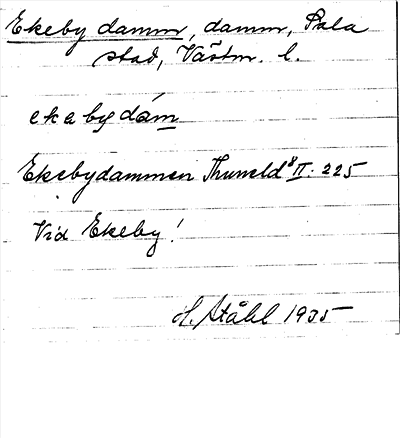 Ekeby damm, damm, Sala
stad, Västm. l.
ekebydám
Ekebydammen Thuneld⁸ II. 225
Vid Ekeby!
H. Ståhl 1935